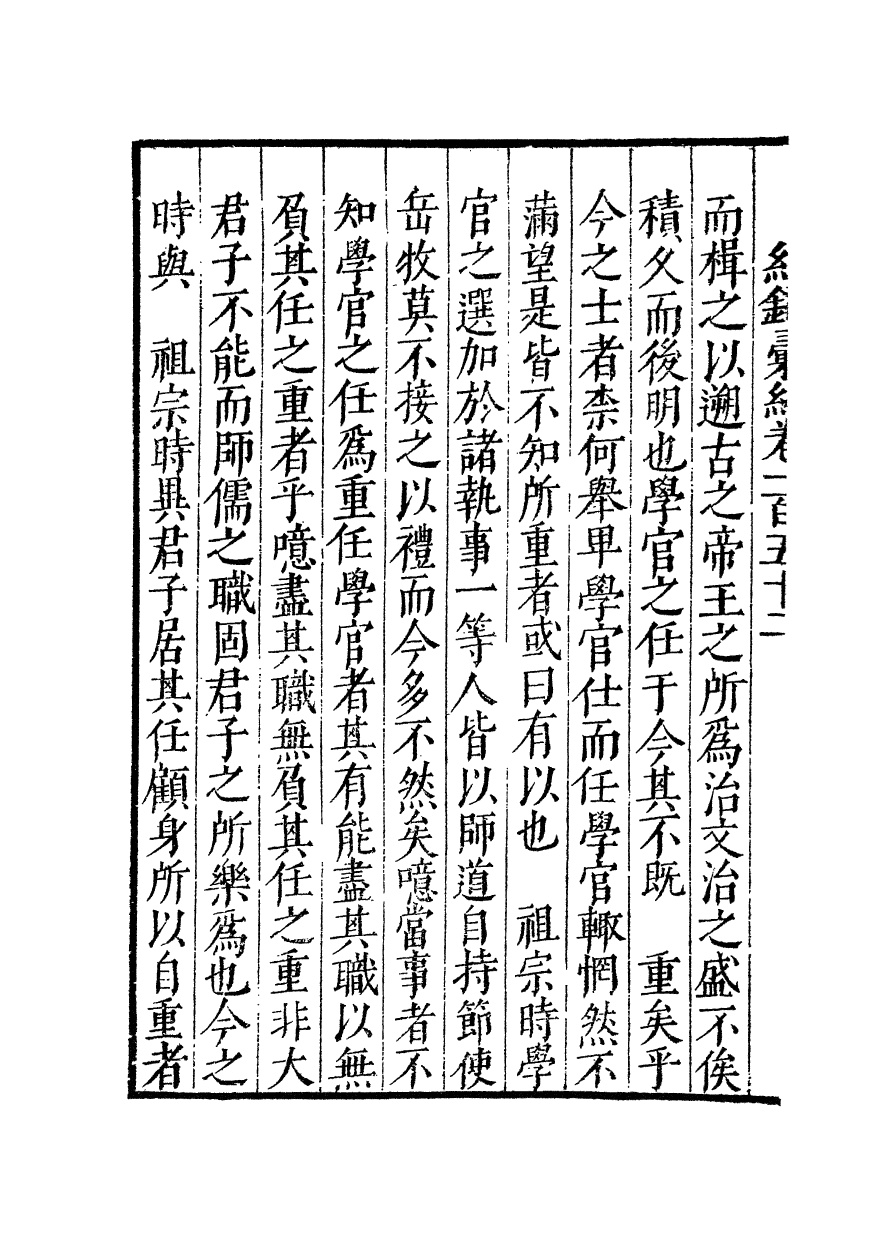 紀錄彙編卷一百五十二
而楫之以遡古之帝王之所爲治文治之盛不俟
積久而後明也學官之任于今其不既　重矣乎
今之士者柰何舉卑學官仕而任學官輙惘然不
滿望是皆不知所重者或曰有以也　祖宗時學
官之選加於諸執事一等人皆以師道自持節使
岳牧莫不接之以禮而今多不然矣噫當事者不
知學官之任爲重任學官者其有能盡其職以無
負其任之重者乎噫盡其職無負其任之重非大
君子不能而師儒之職固君子之所樂爲也今之
時與　祖宗時異君子居其任顧身所以自重者